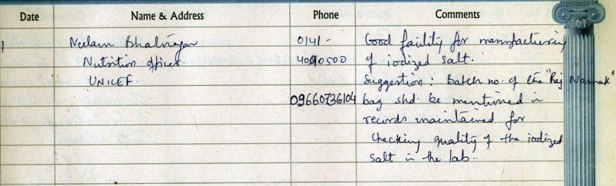 Date Name & Address Phone Comments
Neelam Bhatnagar 0141- Good facility for manufacturing
Nutrition officer 4090500 of iodized salt.
UNICEF. Suggestion: Batch no. of the "Raj Namak"
09660736104 bag shd. be mentioned in
records maintained for
checking quality of the iodized
salt in the lab.